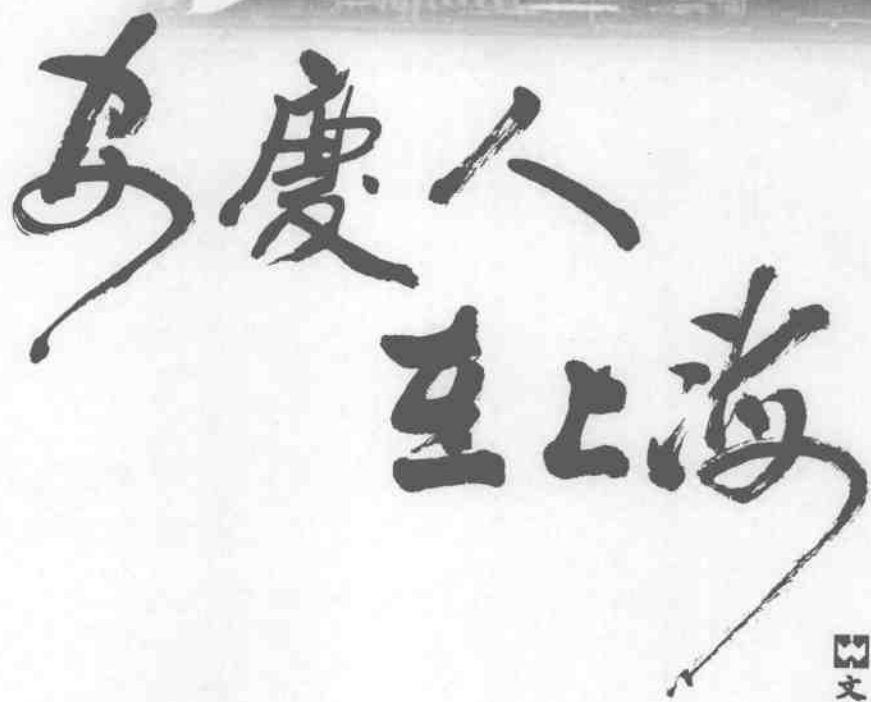 安慶人
在上海
文